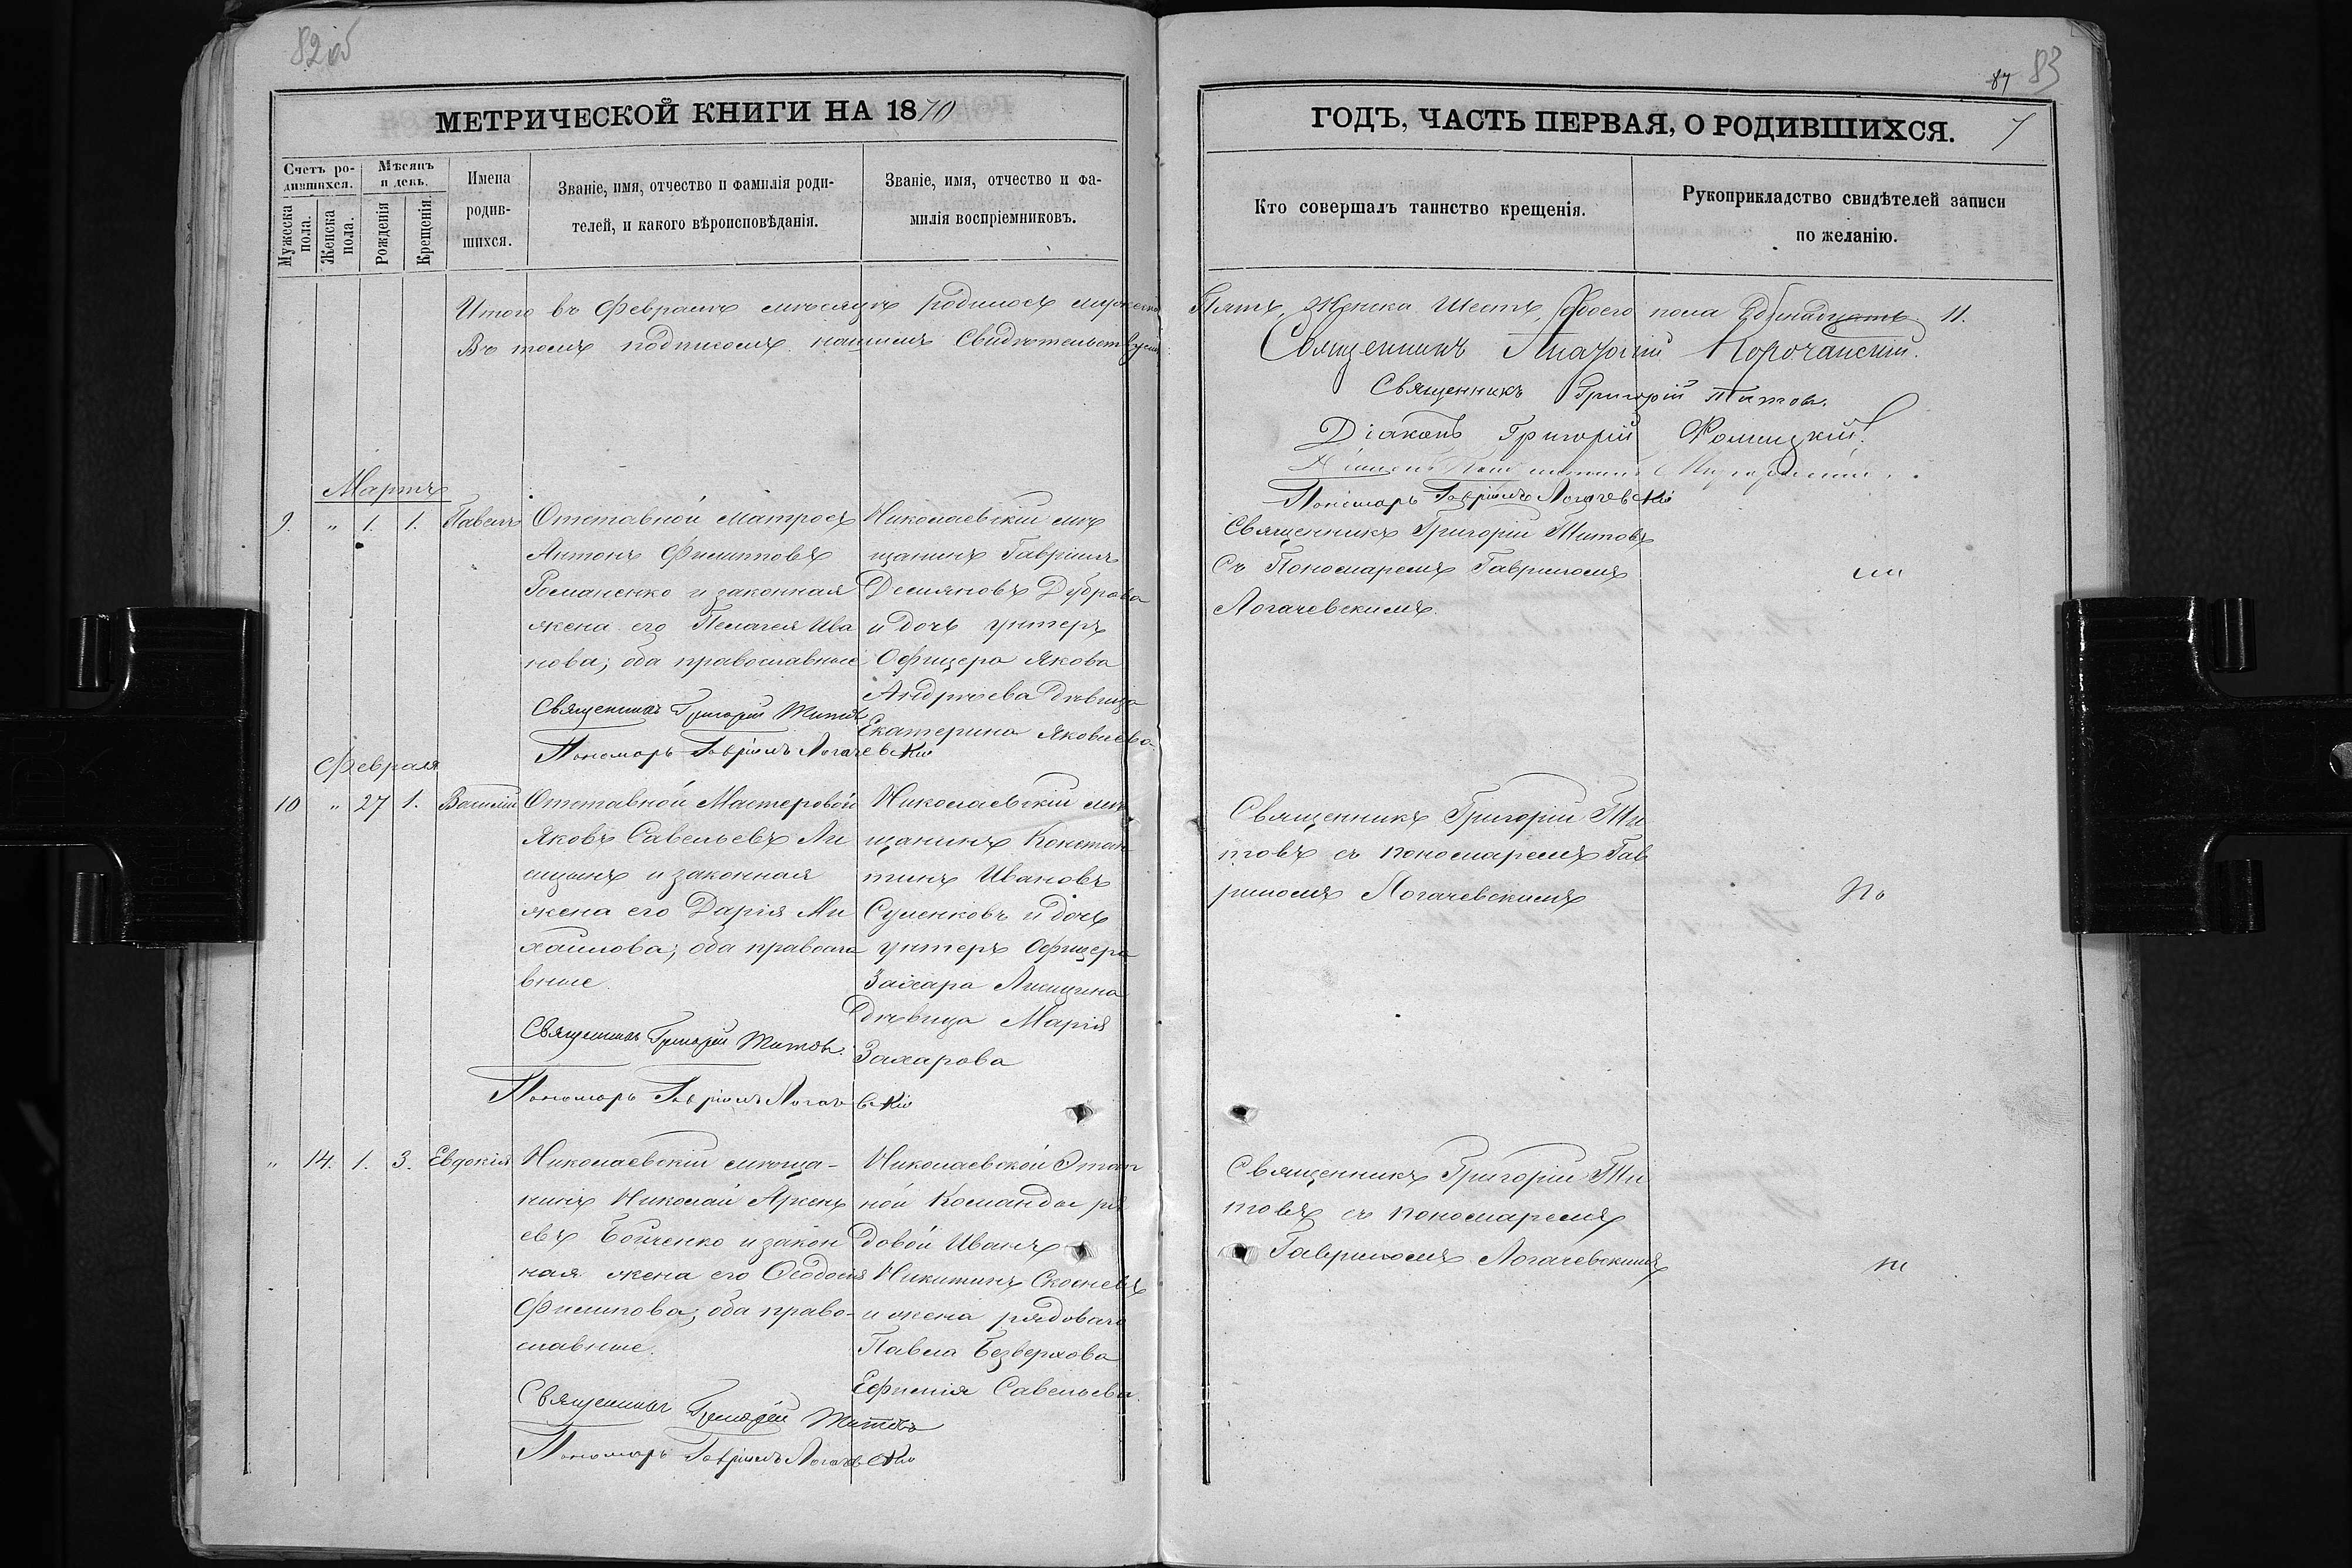 82об
МЕТРИЧЕСКОЙ КНИГИ НА 1870
Счетъ родившихся.
Мужеска пола.
Женска пола.
Мѣсяцъ и день.
Рожденія
Крещенія.
Имена родившихся.
Званіе, имя, отчество и фамилія родителей, и какого вѣроисповѣданія.
Званіе, имя, отчество и фамилія воспріемниковъ.
Итого въ Февралѣ мѣсяцѣ родилось мужеска
Въ томъ подписомъ нашимъ Свидѣтельствуемъ
Мартъ
9. " 1. 1. Павелъ
Отставной матросъ
Антонъ Филипповъ
Романенко и законная
жена его Пелагея Ива
нова; оба православные
Священникъ Григорій Титовъ
Пономарь Гавріилъ Логачевскій
Николаевскій мѣ
щанинъ Гавріилъ
Демяновъ Дуброва
и дочь унтеръ
Офицера Якова
Андрѣева дѣвица
Екатерина Яковлева
Февраля
10 " 27 1. Василій
Отставной Мастеровой
Яковъ Савельевъ Ли
сицынъ и законная
жена его Дарія Ми
хаилова; оба правосла
вные
Священникъ Григорій Титовъ.
Пономарь Гавріилъ Логачевскій
Николаевскій мѣ
щанинъ Констан
тинъ Ивановъ
Суменковъ и дочь
унтеръ Офицера
Захара Лисицина
дѣвица Марія
Захарова
" 14. 1. 3. Евдокія
Николаевскій мѣща-
нинъ Николай Арсень
евъ Бойченко и закон
ная жена его Ѳеодосія
Филипова; оба право-
славные.
Священникъ Григорій Титовъ
Пономарь Гавріилъ Логачевскій
Николаевской Этап
ной Команды ря
довой Иванъ
Никитинъ Скосневъ
и жена рядоваго
Павла Безверхова
Ефимія Савельева
87 83
ГОДЪ, ЧАСТЬ ПЕРВАЯ, О РОДИВШИХСЯ. 7
Кто совершалъ таинство крещенія.
Рукоприкладство свидѣтелей записи по желанію.
Пять, Женска Шесть, Обоего пола Одинадцать 11.
Священникъ Корочанскій.
Священникъ Григорій Титовъ.
Діаконъ Григорій Фомицкій.
Пономарь Гавріилъ Логачевскій
Священникъ Григорій Титовъ
Съ Пономаремъ Гавріиломъ
Логачевскимъ.
Священникъ Григорій Ти
товъ съ пономаремъ Гав
ріиломъ Логачевскимъ
Священникъ Григорій Ти
товъ съ пономаремъ
Гавріиломъ Логачевскимъ